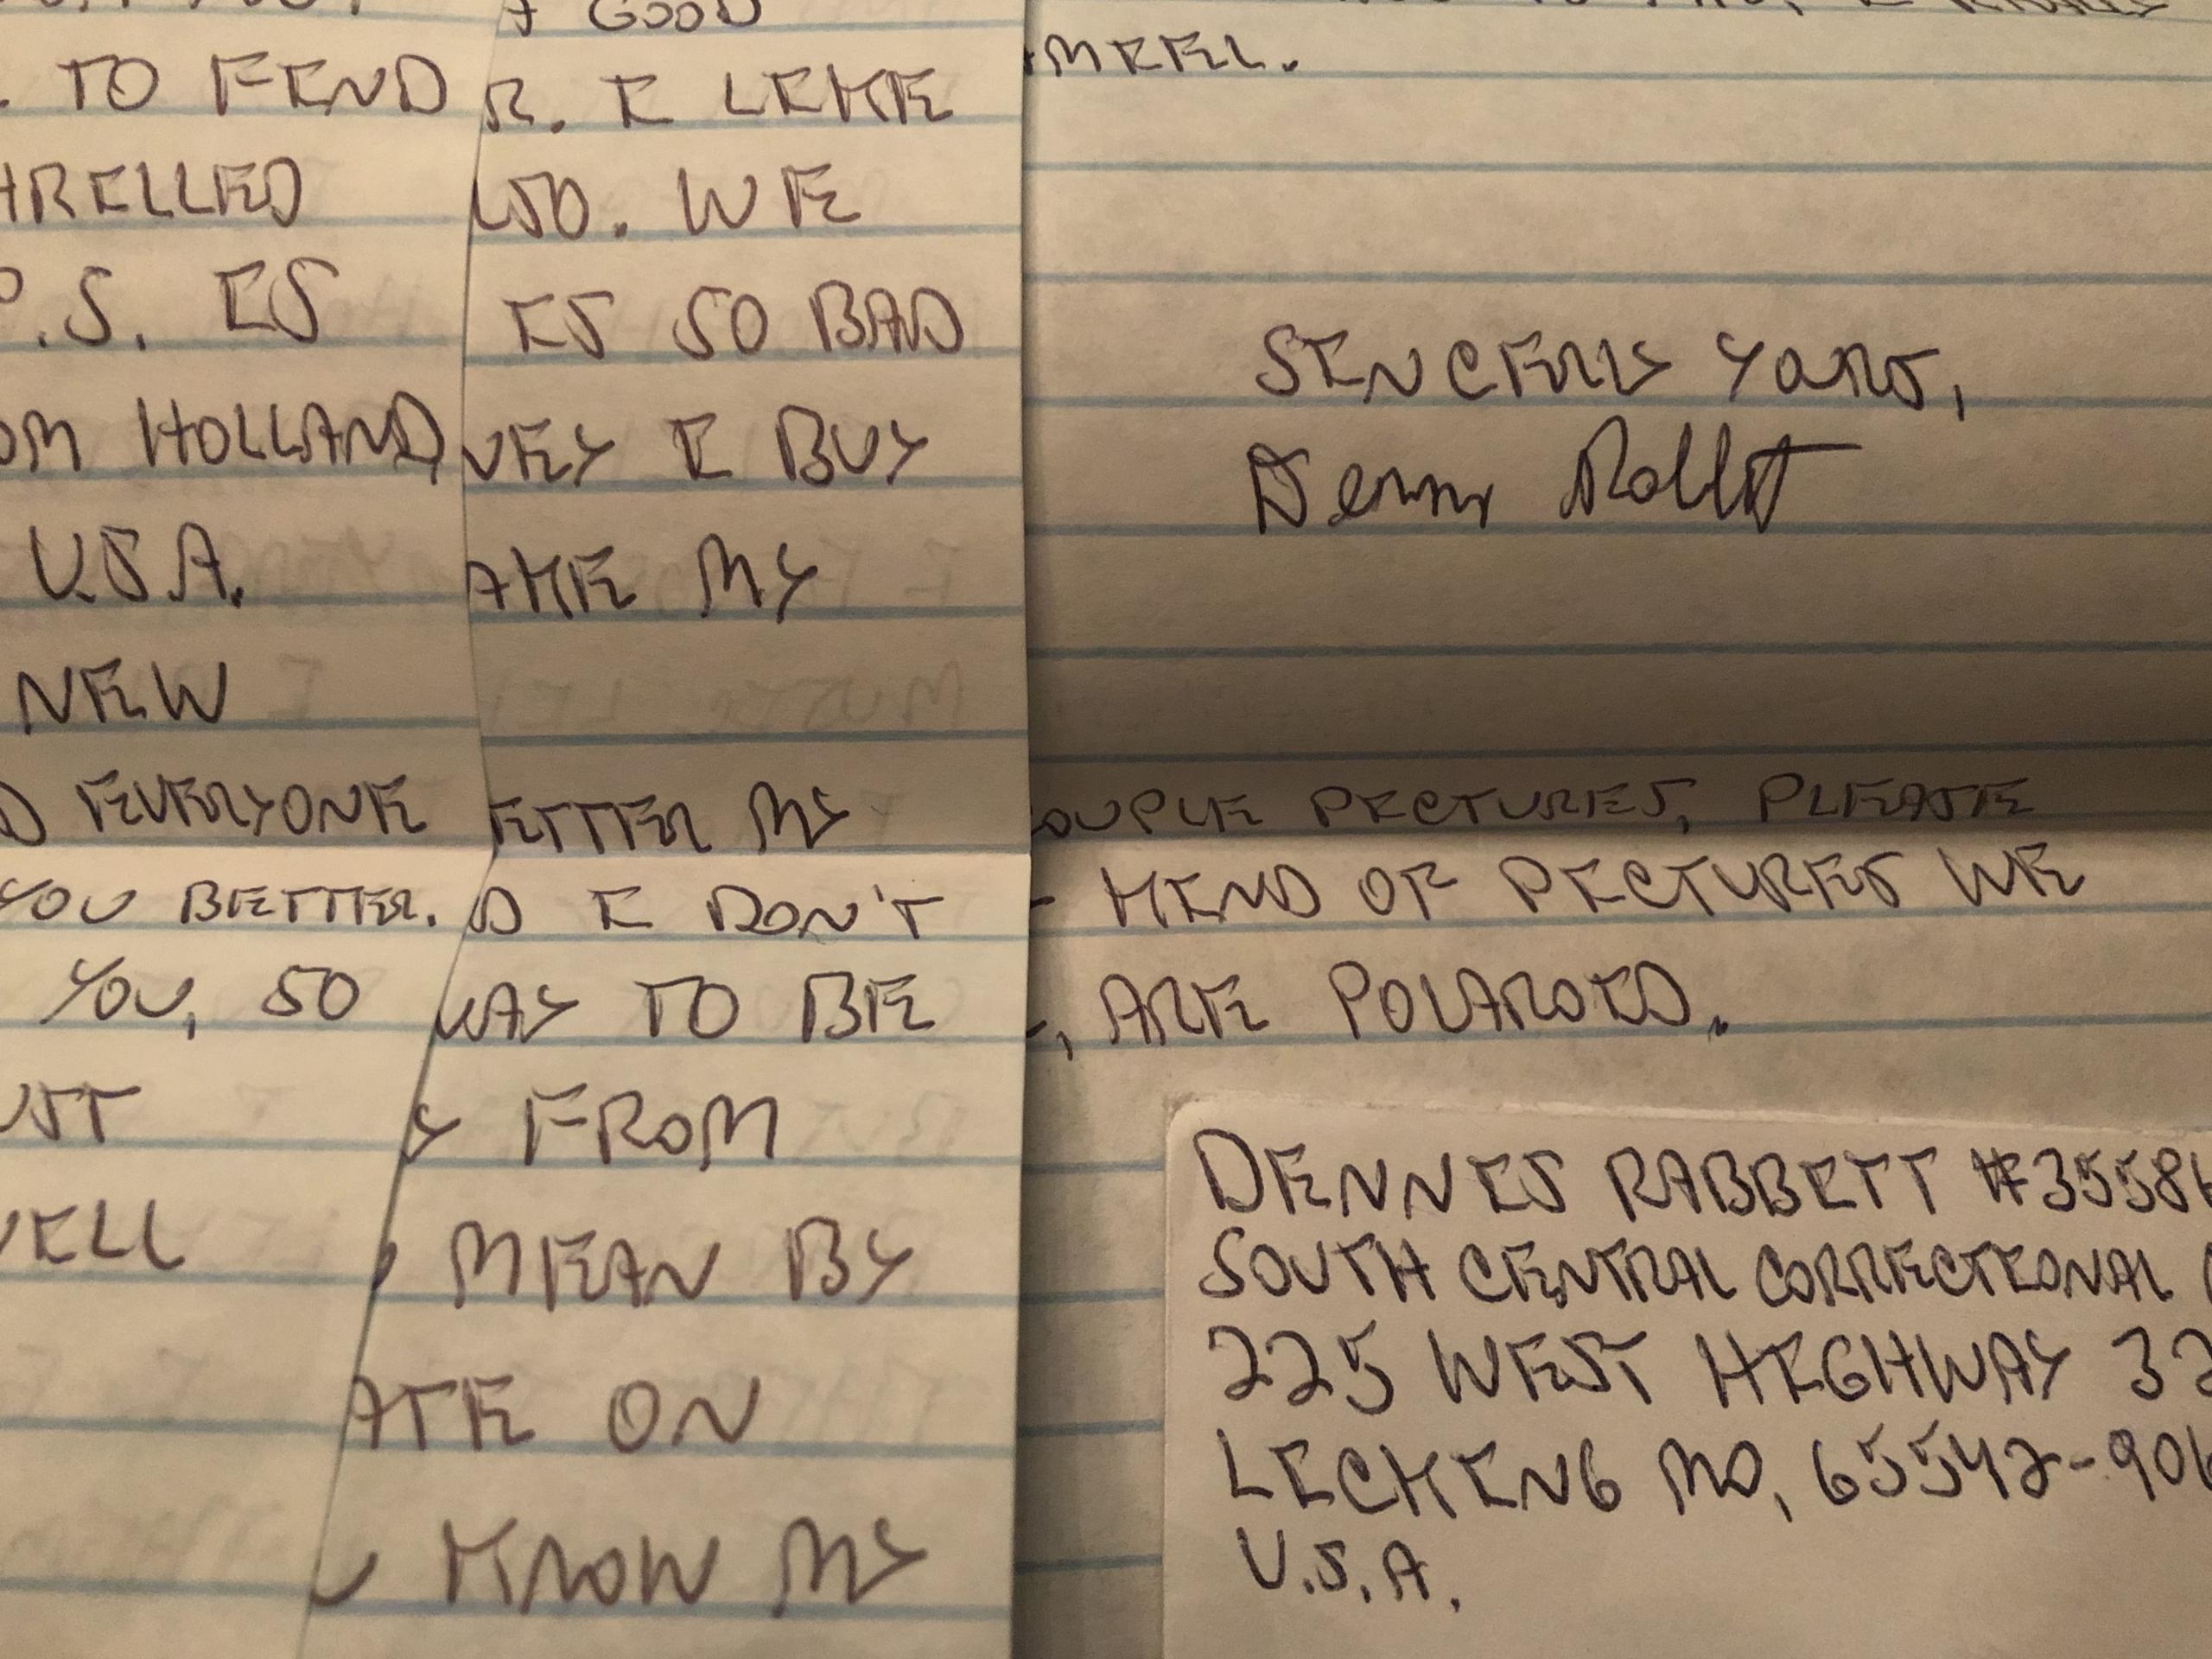 TO FIND
HRILLED
P.S. IS
OM HOLLAND,
U.S.A.
NEW
D EVERYONE
YOU BETTER.
YOU, SO
UST
ELL
GOOD
R. I LIKE
LSO. WE
IS SO BAD
NEY I BUY
AKE MY
ETTER MY
D I DON'T
WAY TO BE
Y FROM
MEAN BY
ATE ON
KNOW MY
SINCERLY YOURS,
Dennis Rabbitt
OUPLE PICTURES, PLEASE
KIND OF PICTURES WE
, ARE POLAROID.
DENNIS RABBITT #3558
SOUTH CENTRAL CORRECTIONAL
225 WEST HIGHWAY 32
LICKING MO, 65542-90
U.S.A.